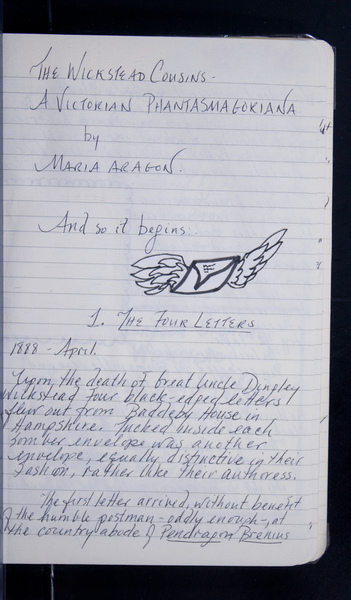 THE WICKSTEAD COUSINS -
A VICTORIAN PHANTASMAGORIANA
by
MARIA ARAGON.
And so it begins:
1. THE FOUR LETTERS
1888 - April.
Upon the death of Great Uncle Dingley
Wickstead four black-edged letters
flew out from Baddeby House in
Hampshire. Tucked inside each
somber envelope was another
envelope, equally distinctive in their
fashion, rather like their authoress.
The first letter arrived, without benefit
of the humble postman - oddly enough -, at
the country abode of Pendragon Brenius